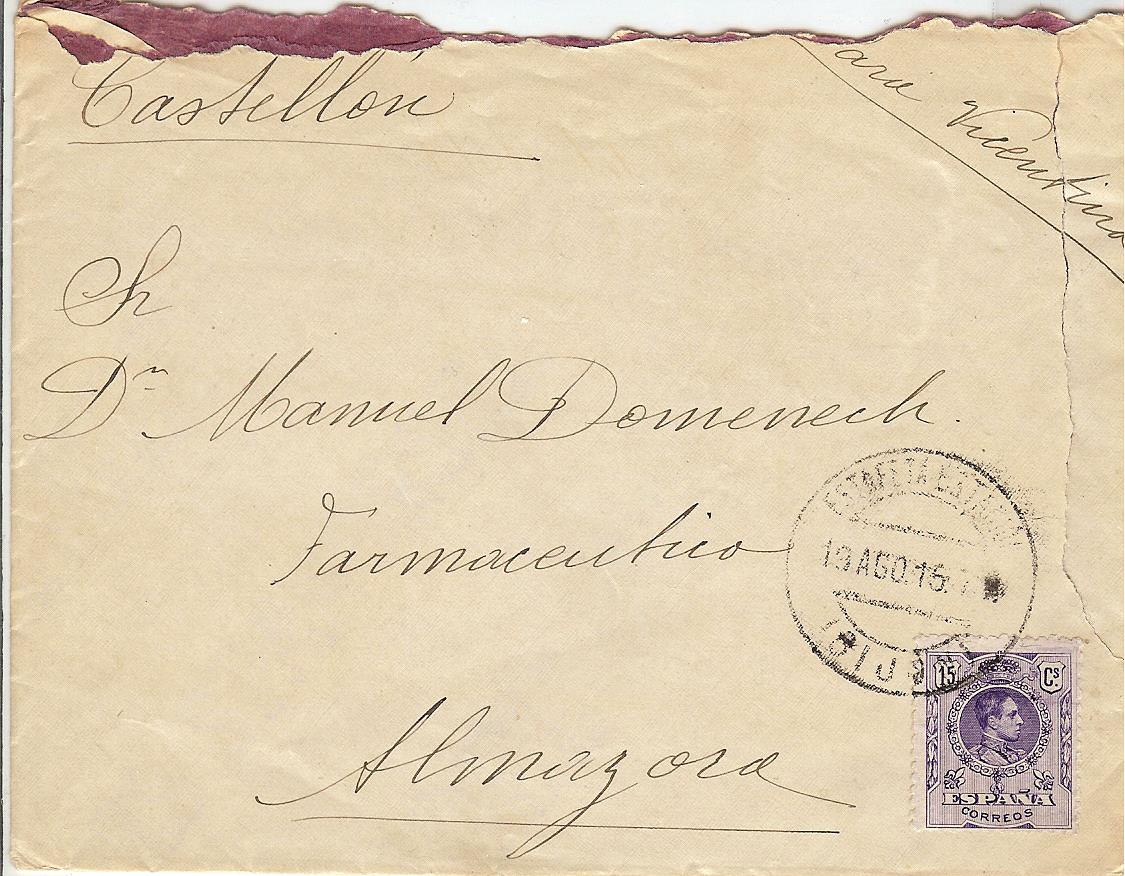 Castellón
ara Vicentina
Sr
Dn Manuel Domenech.
Farmaceutico
19 AGO.15.7
Almazora
15 Cs
ESPAÑA
CORREOS